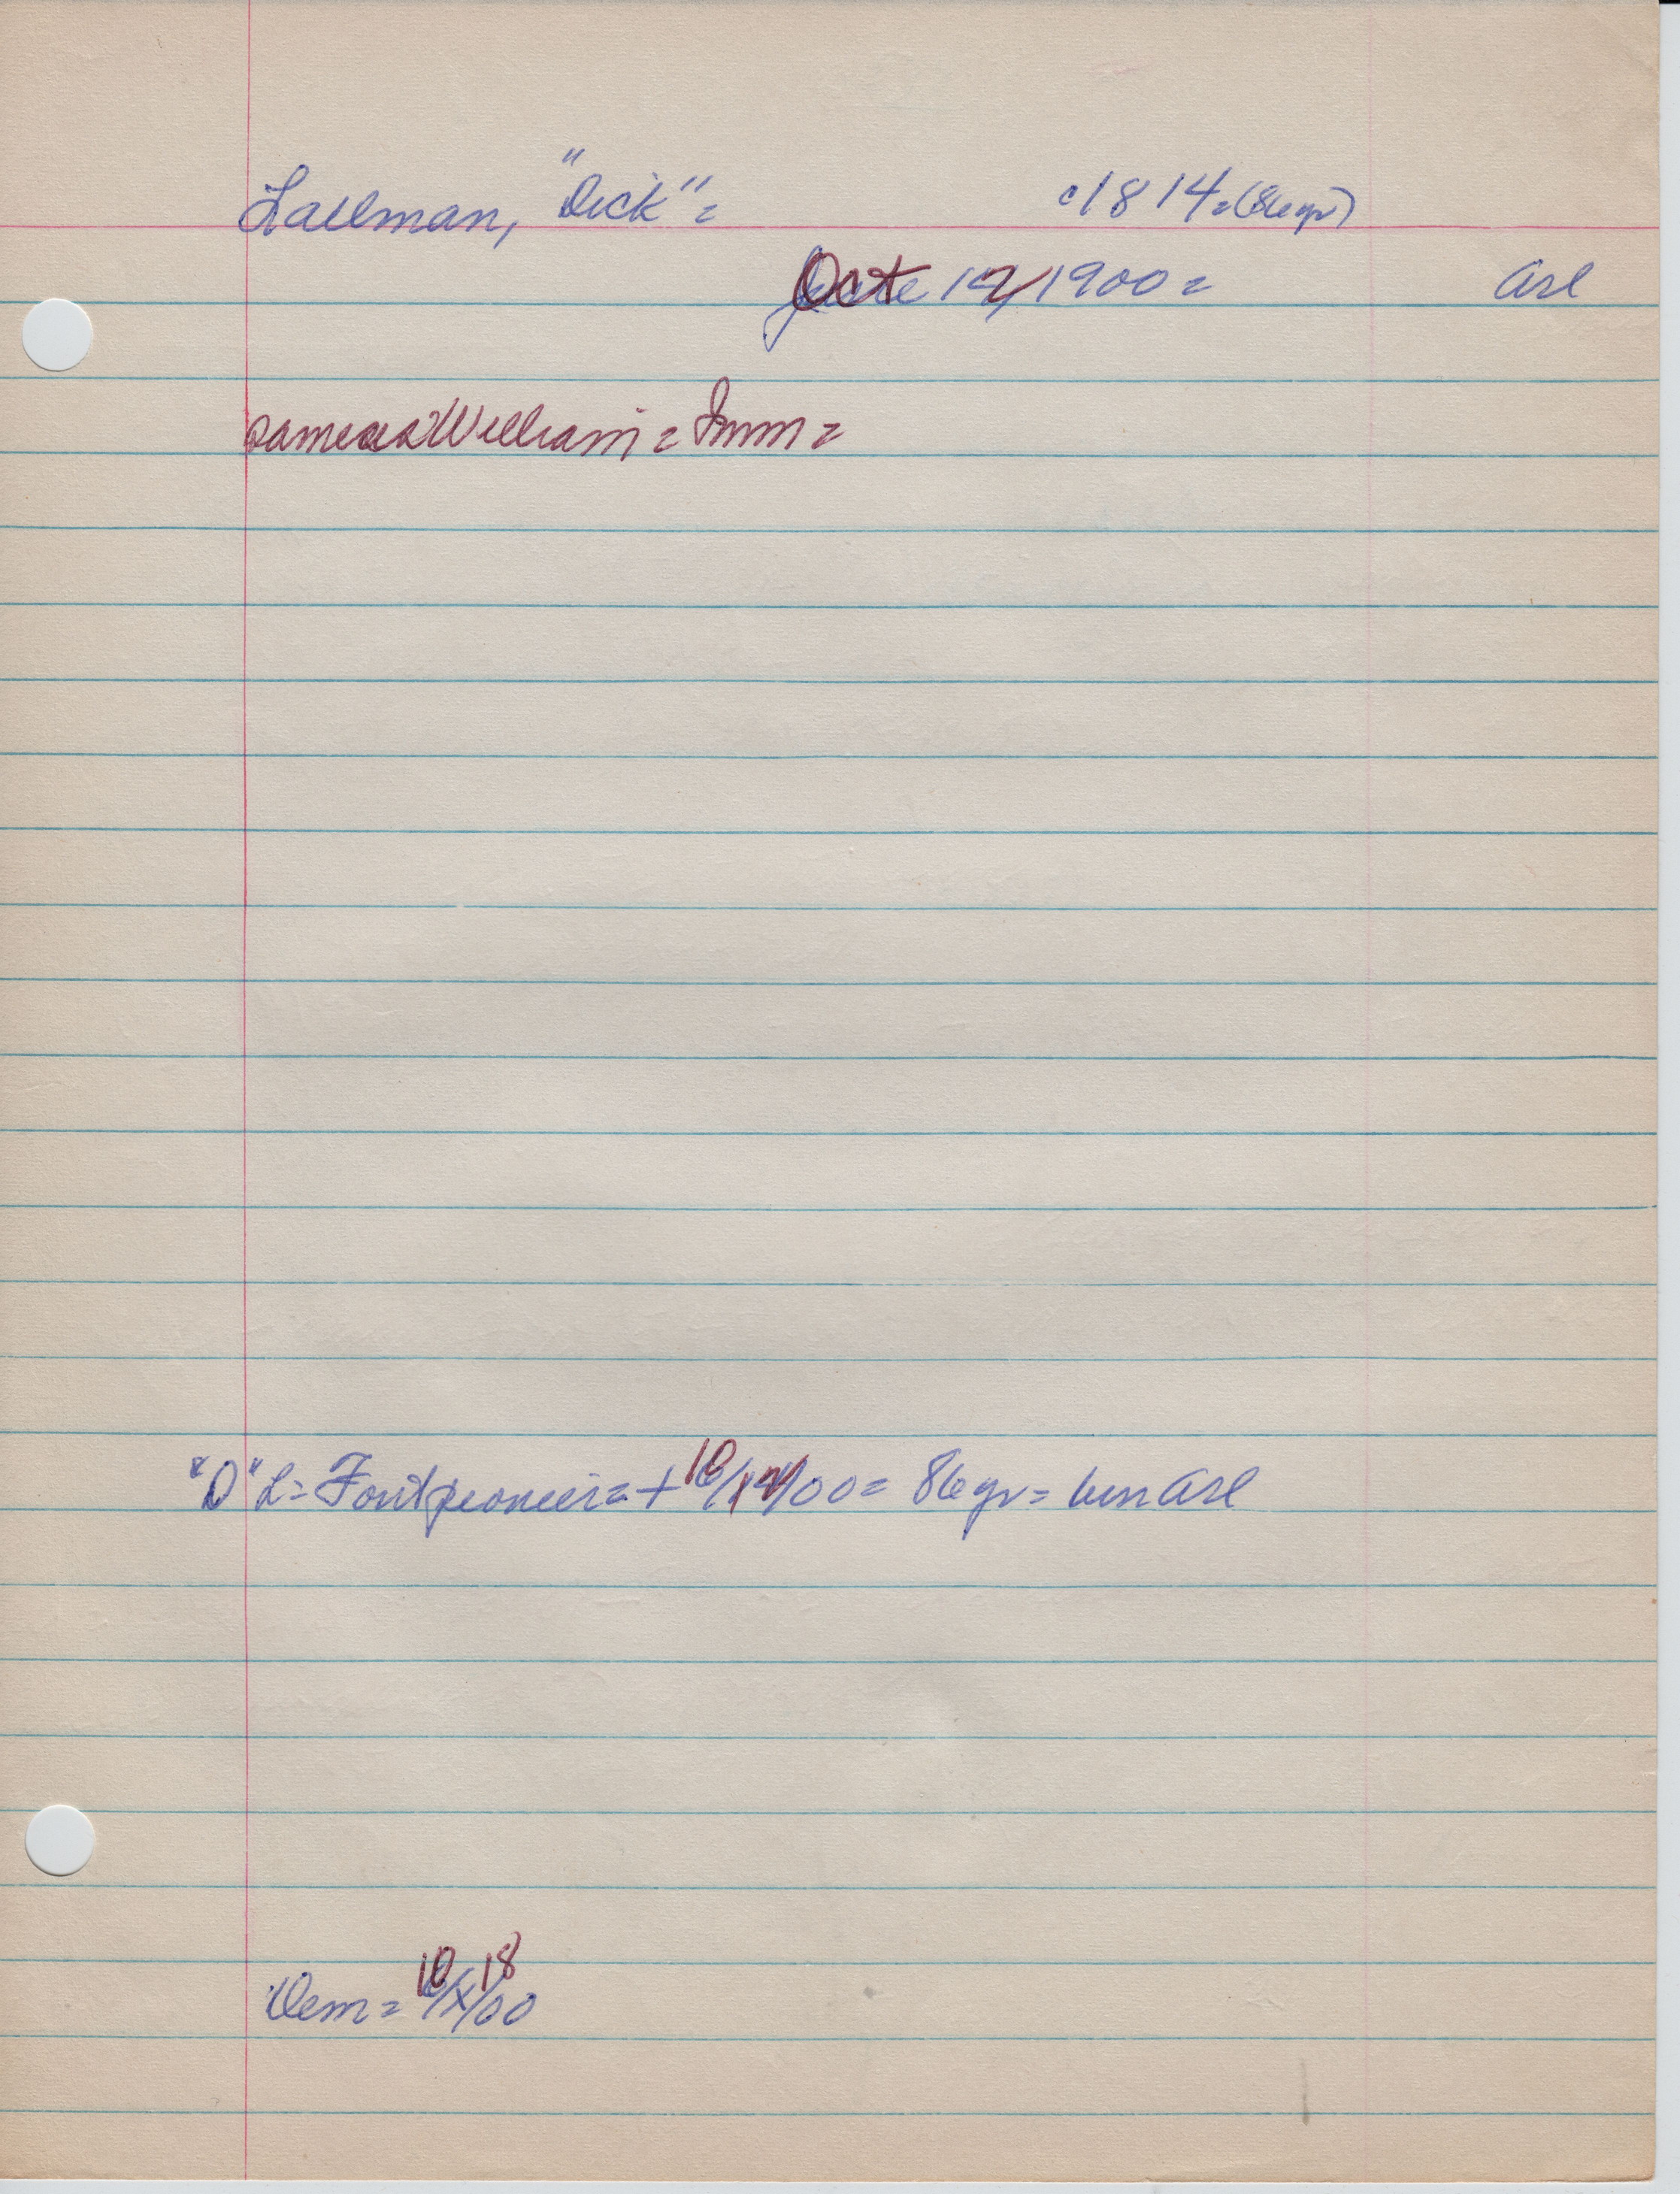 Lallman, "Dick" = c1814 = (86yr)
Oct 12/1900 = Arl
same as William = Imm =
"D" L = Font pioneer = + 10/12/00 = 86yr = bur Arl
Dem = 10/18/00